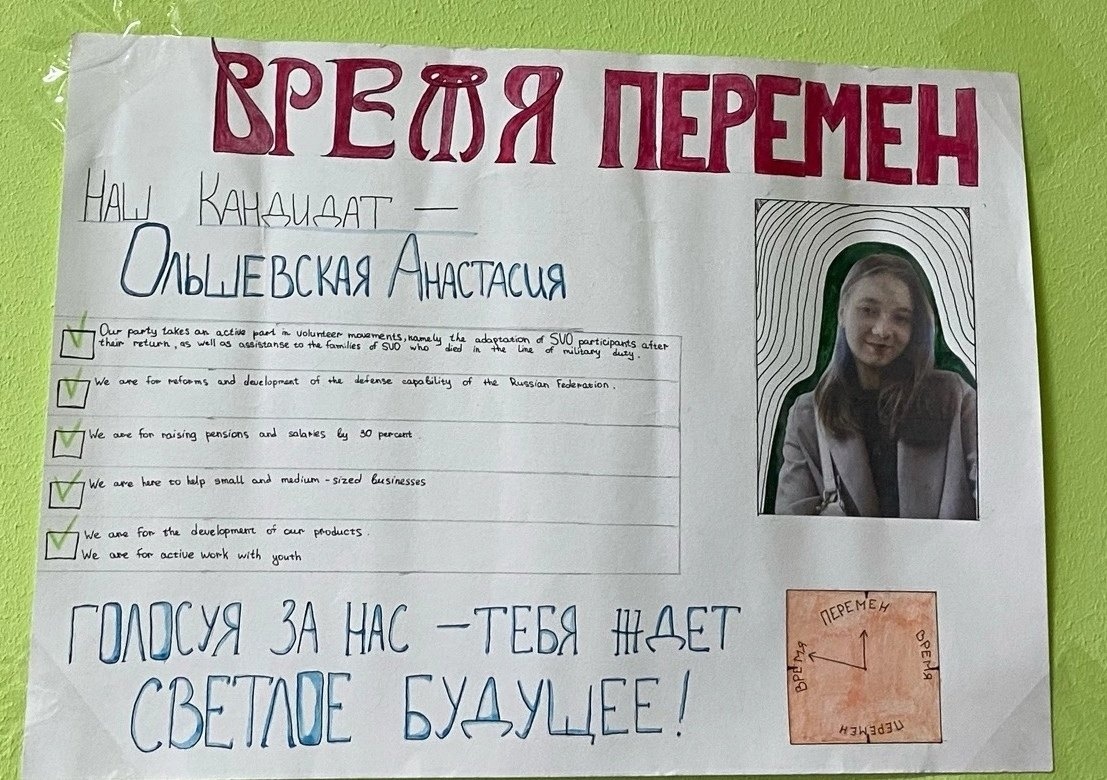 ВРЕМЯ ПЕРЕМЕН
НАШ КАНДИДАТ —
ОЛЬШЕВСКАЯ АНАСТАСИЯ
Our party takes an active part in volunteer movements, namely the adaptation of SVO participants after
their return, as well as assistanse to the families of SVO who died in the line of military duty.
We are for reforms and development of the defense capability of the Russian Federation.
We are for raising pensions and salaries by 30 percent.
We are here to help small and medium-sized businesses
We are for the development of our products.
We are for active work with youth
ГОЛОСУЯ ЗА НАС —ТЕБЯ ЖДЕТ
СВЕТЛОЕ БУДУЩЕЕ!
ПЕРЕМЕН
ВРЕМЯ
ПЕРЕМЕН
ВРЕМЯ